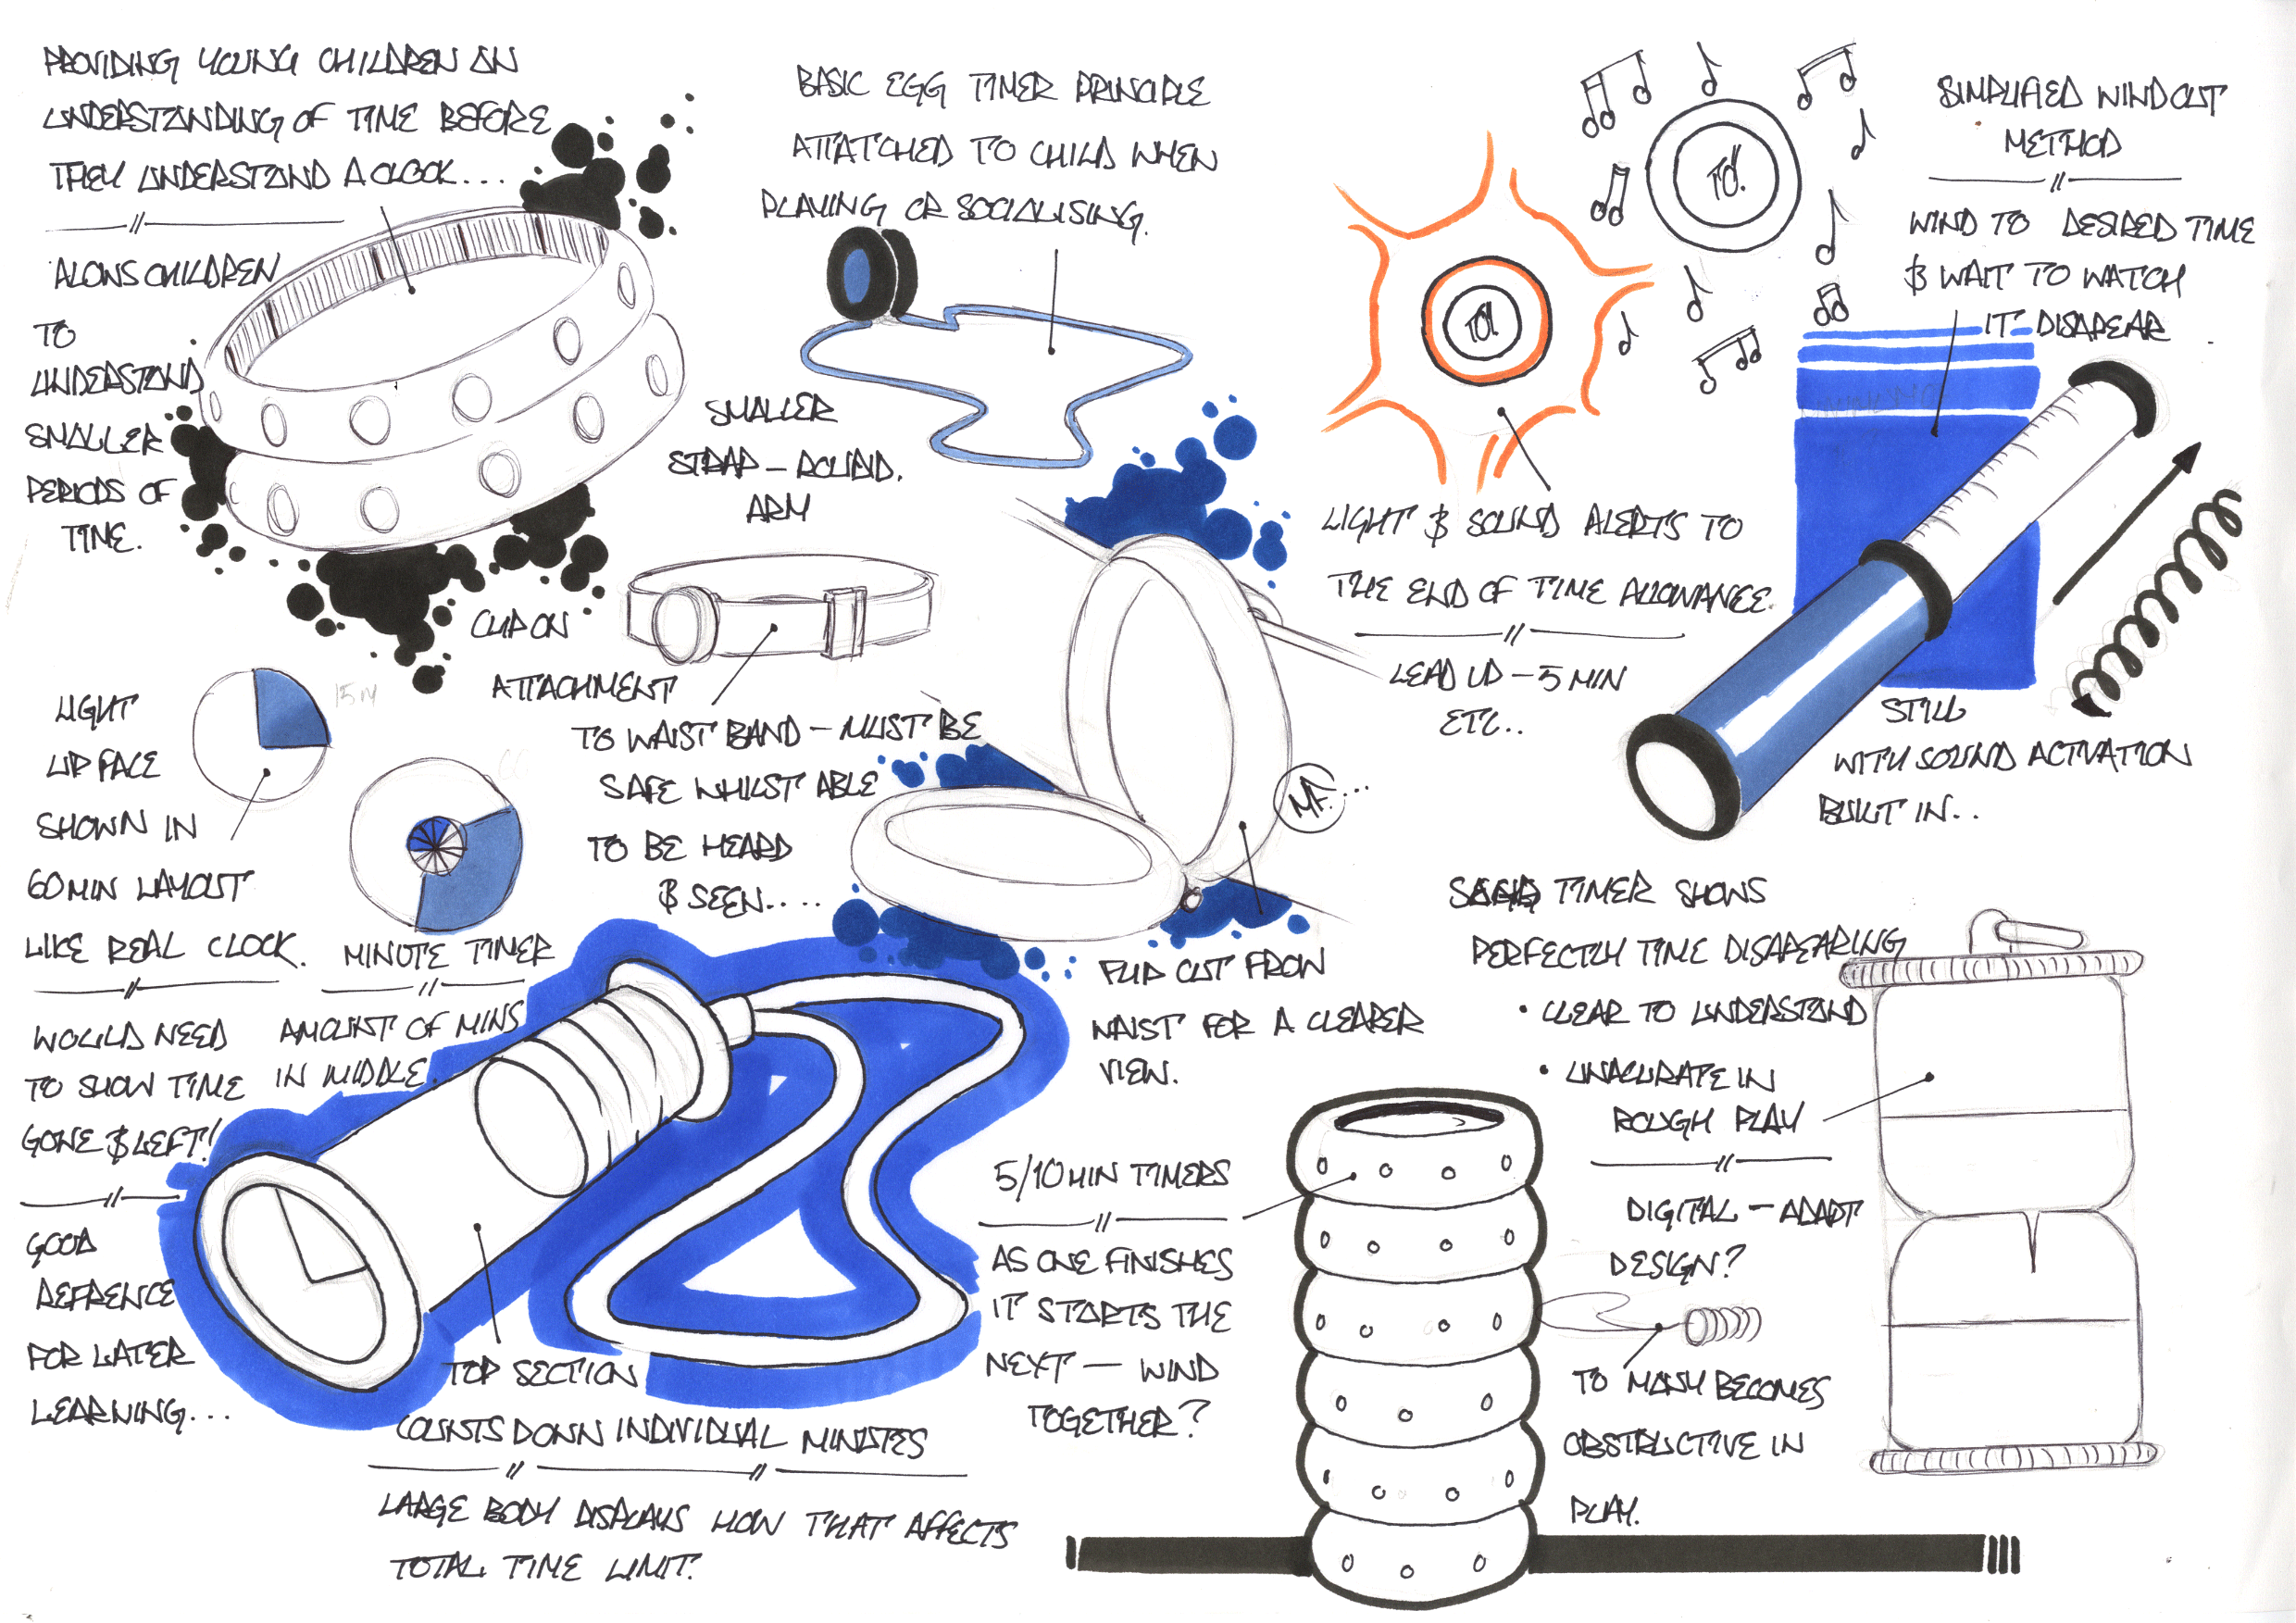 PROVIDING YOUNG CHILDREN AN
UNDERSTANDING OF TIME BEFORE
THEY UNDERSTAND A CLOCK...
ALOWS CHILDREN
TO
UNDERSTAND
SMALLER
PERIODS OF
TIME.
BASIC EGG TIMER PRINCIPLE
ATTATCHED TO CHILD WHEN
PLAYING OR SOCIALISING.
SMALLER
STRAP - ROUND.
ARM
CLIP ON
ATTACHMENT
TO WAIST BAND - MUST BE
SAFE WHILST ABLE
TO BE HEARD
& SEEN....
TO!
TO!
LIGHT & SOUND ALERTS TO
THE END OF TIME ALLOWANCE.
LEAD UP - 5 MIN
ETC..
SIMPLIFIED WIND OUT
METHOD
WIND TO DESIRED TIME
& WAIT TO WATCH
IT DISAPEAR
STILL
WITH SOUND ACTIVATION
BUILT IN..
LIGHT
UP FACE
SHOWN IN
60 MIN LAYOUT
LIKE REAL CLOCK.
15 M
WOULD NEED
TO SHOW TIME
GONE & LEFT!
GOOD
REFRENCE
FOR LATER
LEARNING...
MINUTE TIMER
AMOUNT OF MINS
IN MIDDLE.
MF...
FLIP OUT FROM
WAIST FOR A CLEARER
VIEW.
TOP SECTION
COUNTS DOWN INDIVIDUAL MINUTES
LARGE BODY DISPLAYS HOW THAT AFFECTS
TOTAL TIME LIMIT.
5/10 MIN TIMERS
AS ONE FINISHES
IT STARTS THE
NEXT - WIND
TOGETHER?
TIMER SHOWS
PERFECTLY TIME DISAPEARING
• CLEAR TO UNDERSTAND
• UNACURATE IN
ROUGH PLAY
DIGITAL - ADAPT
DESIGN?
TO MANY BECOMES
OBSTRUCTIVE IN
PLAY.